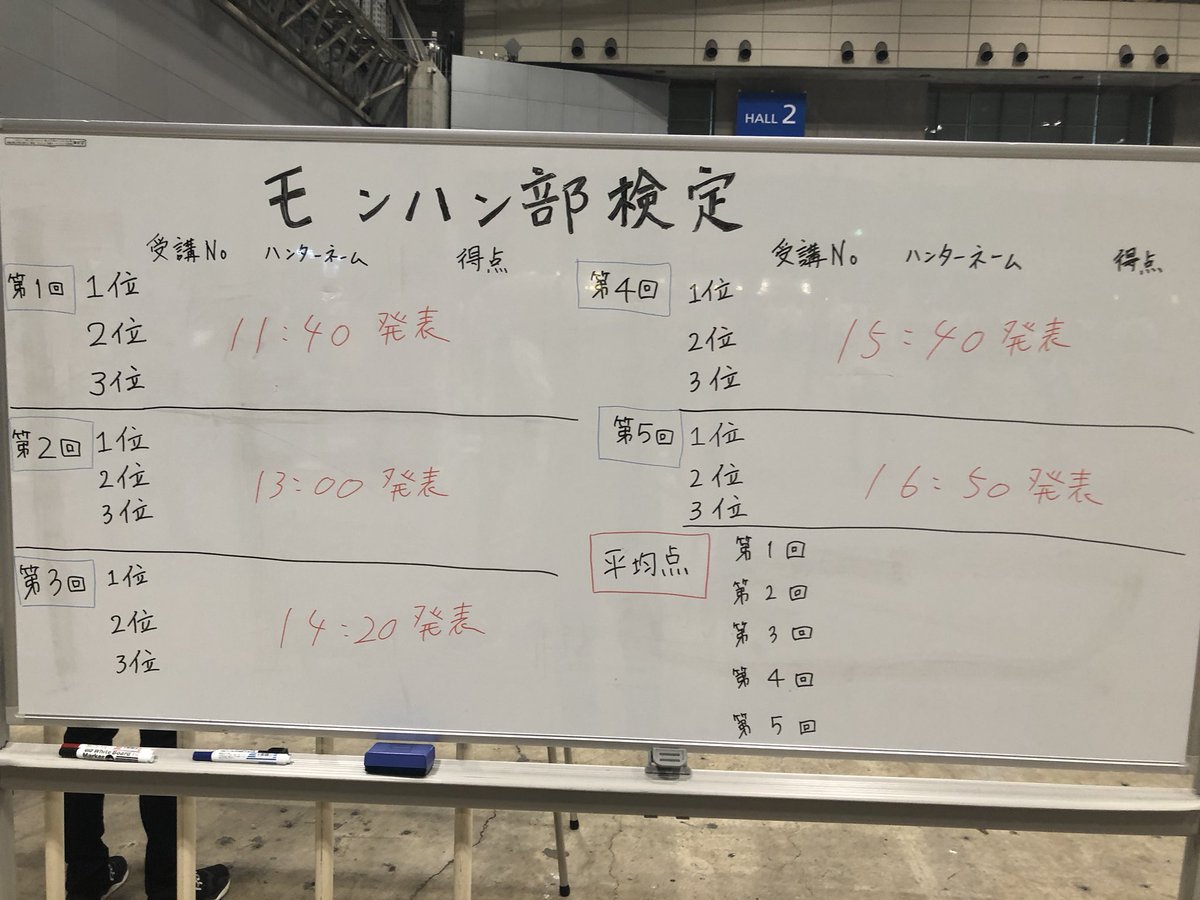 HALL 2
モンハン部検定
受講No ハンターネーム 得点
第1回 1位
2位 11:40 発表
3位
第2回 1位
2位 13:00 発表
3位
第3回 1位
2位 14:20 発表
3位
受講No ハンターネーム 得点
第4回 1位
2位 15:40 発表
3位
第5回 1位
2位 16:50 発表
3位
平均点 第1回
第2回
第3回
第4回
第5回
White Board
Marker